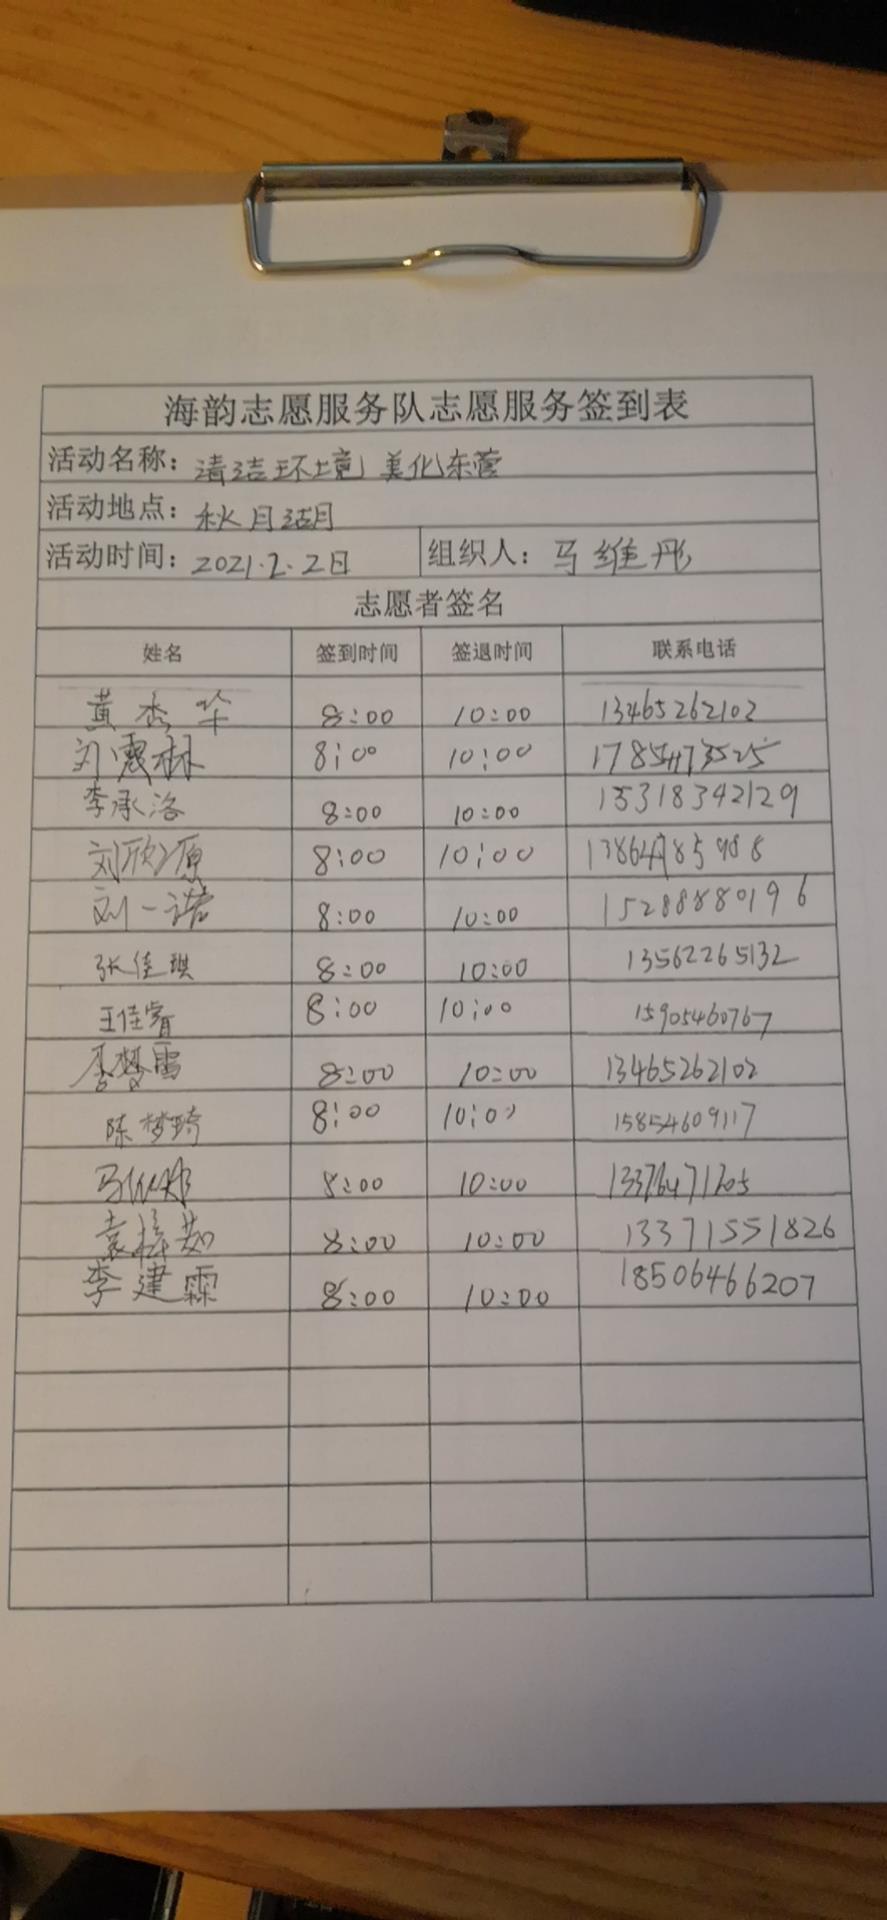 海韵志愿服务队志愿服务签到表
活动名称：清洁环境 美化东营
活动地点：秋月湖
活动时间：2021.2.2日 组织人：马维彤
志愿者签名
姓名 签到时间 签退时间 联系电话
黄杰华 8:00 10:00 13465262102
刘震林 8:00 10:00
李承洛 8:00 10:00 15318342129
刘欣源 8:00 10:00
刘一诺 8:00 10:00 15288880196
张佳琪 8:00 10:00 13562265132
王佳睿 8:00 10:00 15905460767
李梦雪 8:00 10:00 13465262102
陈梦琦 8:00 10:00 15854609117
8:00 10:00 13376471705
袁梓茹 8:00 10:00 13371551826
李建霖 8:00 10:00 18506466207